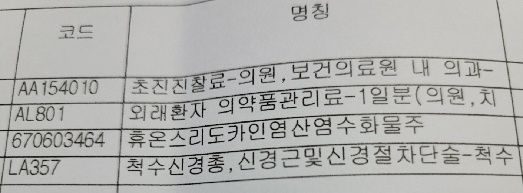 코드 명칭
AA154010 초진진찰료-의원,보건의료원 내 의과-
AL801 외래환자 의약품관리료-1일분(의원,치
670603464 휴온스리도카인염산염수화물주
LA357 척수신경총,신경근및신경절차단술-척수